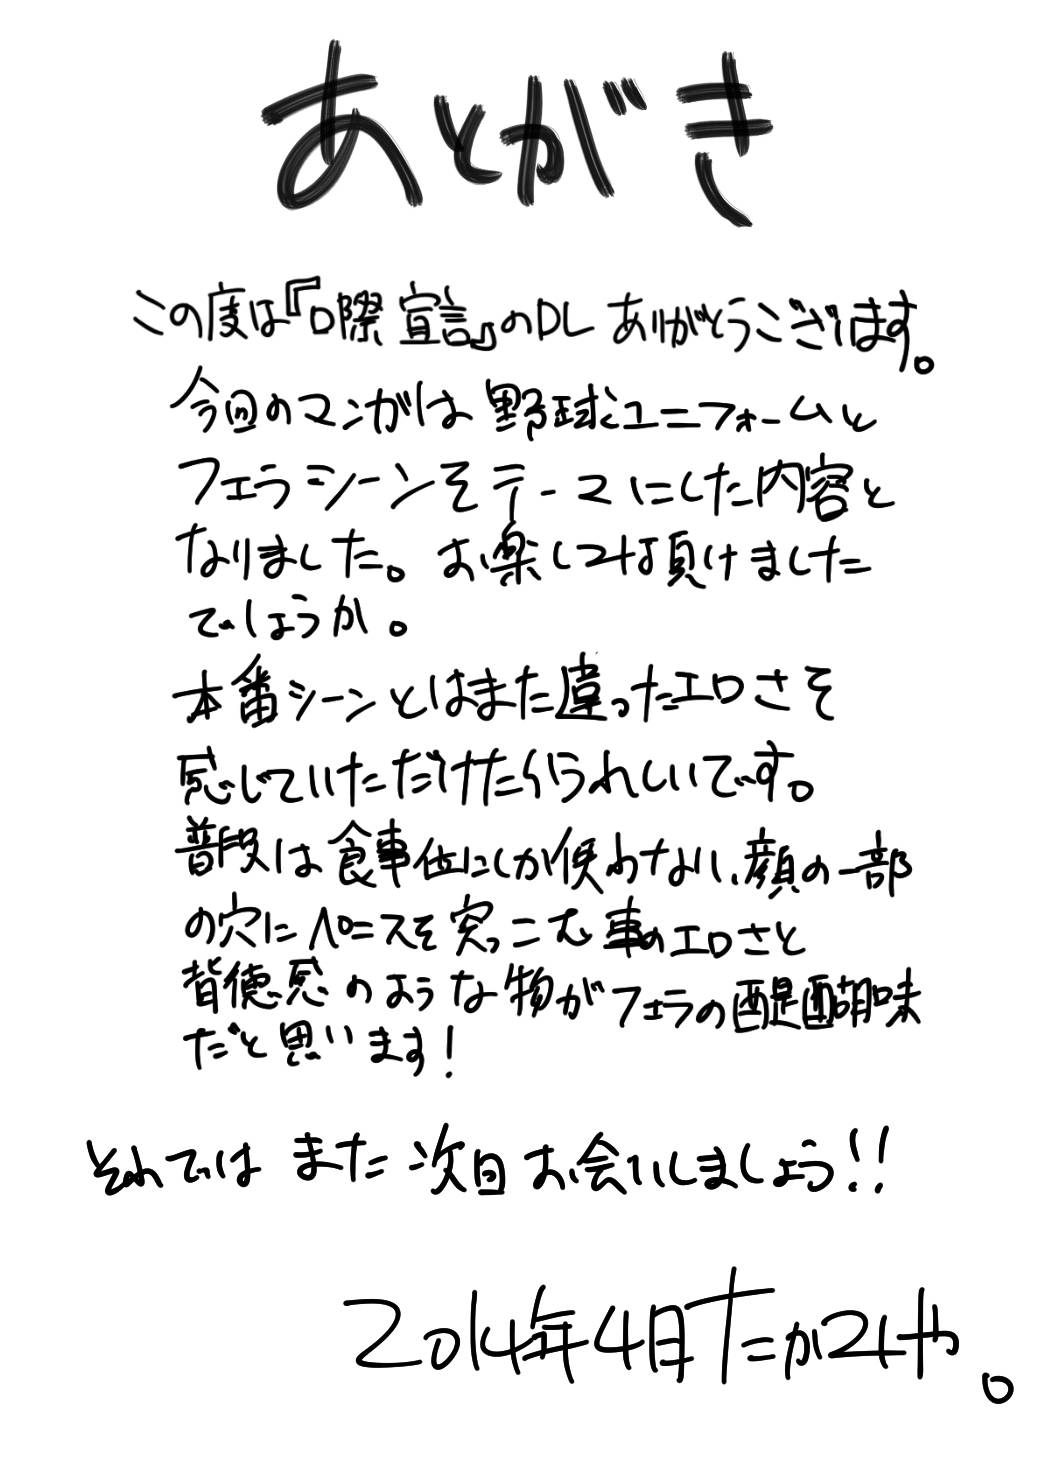 あとがき
この度は『口際宣言』のDLありがとうございます。
今回のマンガは野球ユニフォームと
フェラシーンをテーマにした内容と
なりました。お楽しみ頂けました
でしょうか。
本番シーンとはまた違ったエロさを
感じていただけたらうれしいです。
普段は食事位にしか使わない、顔の一部
の穴にペニスを突っこむ事のエロさと
背徳感のような物がフェラの醍醐味
だと思います!
それでは また次回お会いしましょう!!
2014年4月